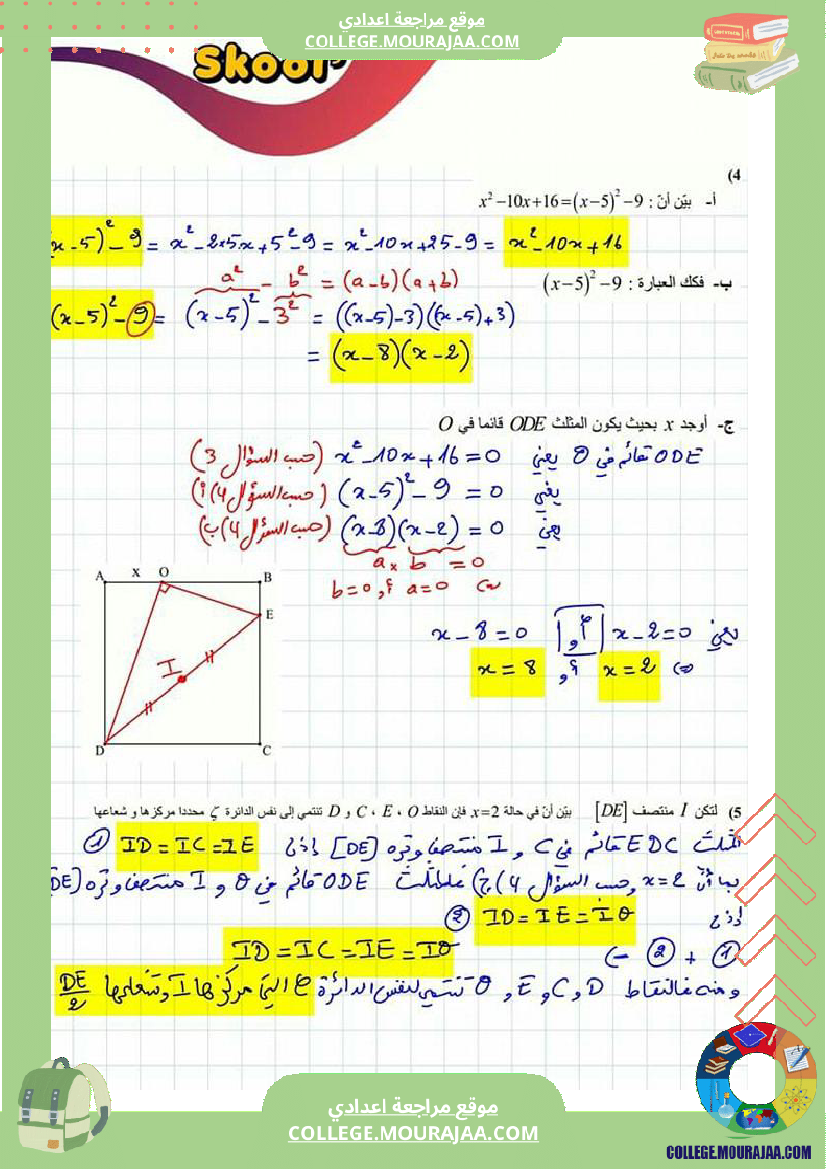 موقع مراجعة اعدادي
COLLEGE.MOURAJAA.COM
Skool
4)
أ- بيّن أنّ : x² −10x+16=(x−5)² −9
x - 5)² - 9 = x² - 2×5x + 5² - 9 = x² - 10x + 25 - 9 = x² - 10x + 16
ب- فكك العبارة : (x−5)² −9
a² - b² = (a-b)(a+b)
(x-5)² - 9 = (x-5)² - 3² = ((x-5)-3)((x-5)+3)
= (x-8)(x-2)
ج- أوجد x بحيث يكون المثلث ODE قائما في O
ODE قائم في O يعني x² - 10x + 16 = 0 (حسب السؤال 3)
يعني (x-5)² - 9 = 0 (حسب السؤال 4)أ)
يعني (x-8)(x-2) = 0 (حسب السؤال 4)ب)
a × b = 0
a=0 أو b=0
يعني x-2=0 أو x-8=0
x=2 أو x=8
A x O B
E
I
D C
5) لتكن I منتصف [DE] بيّن أنّ في حالة x=2 فإن النقاط O ، E ، C و D تنتمي إلى نفس الدائرة ζ محددا مركزها و شعاعها
المثلث EDC قائم في C و I منتصف وتره [DE] إذن ID = IC = IE ①
بما أنّ x=2 وحسب السؤال 4)ج) فالمثلث ODE قائم في O و I منتصف وتره [DE
إذن ID = IE = IO ②
① + ② ID = IC = IE = IO
ومنه فالنقاط D و C و E و O تنتمي لنفس الدائرة ζ التي مركزها I وشعاعها DE/2
موقع مراجعة اعدادي
COLLEGE.MOURAJAA.COM
COLLEGE.MOURAJAA.COM